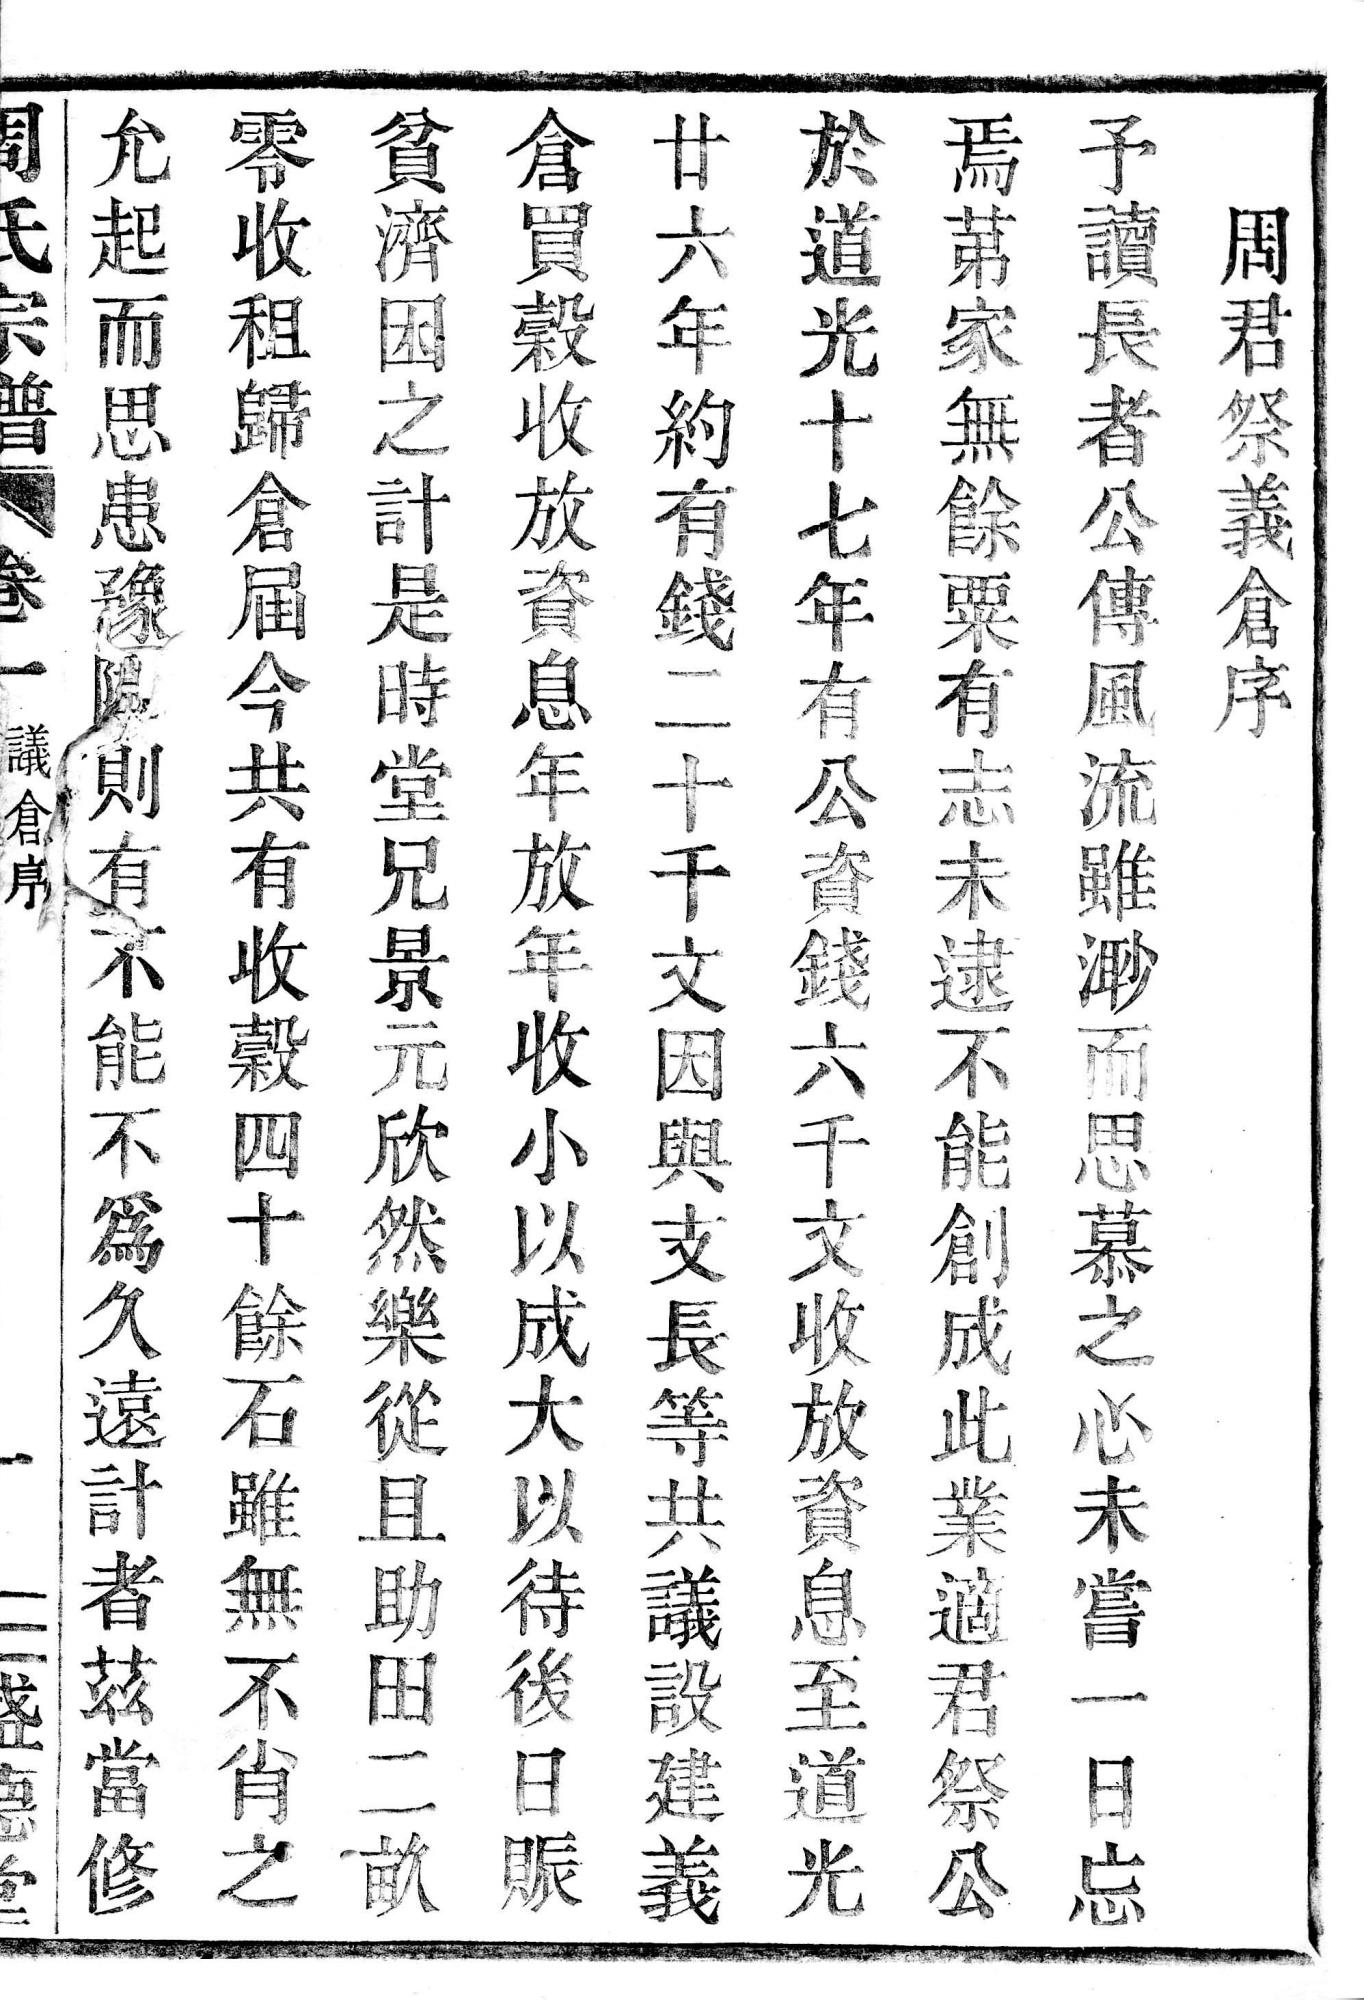 周君祭義倉序
予讀長者公傳風流雖渺而思慕之心未嘗一日忘
焉苐家無餘粟有志未逮不能創成此業適君祭公
於道光十七年有公資錢六千文收放資息至道光
廿六年約有錢二十千文因與支長等共議設建義
倉買穀收放資息年放年收小以成大以待後日賑
貧濟困之計是時堂兄景元欣然樂從且助田二畝
零收租歸倉届今共有收穀四十餘石雖無不肖之
允起而思患豫則有不能不爲久遠計者茲當修
周氏宗譜 卷一 議倉序 二 盛德堂